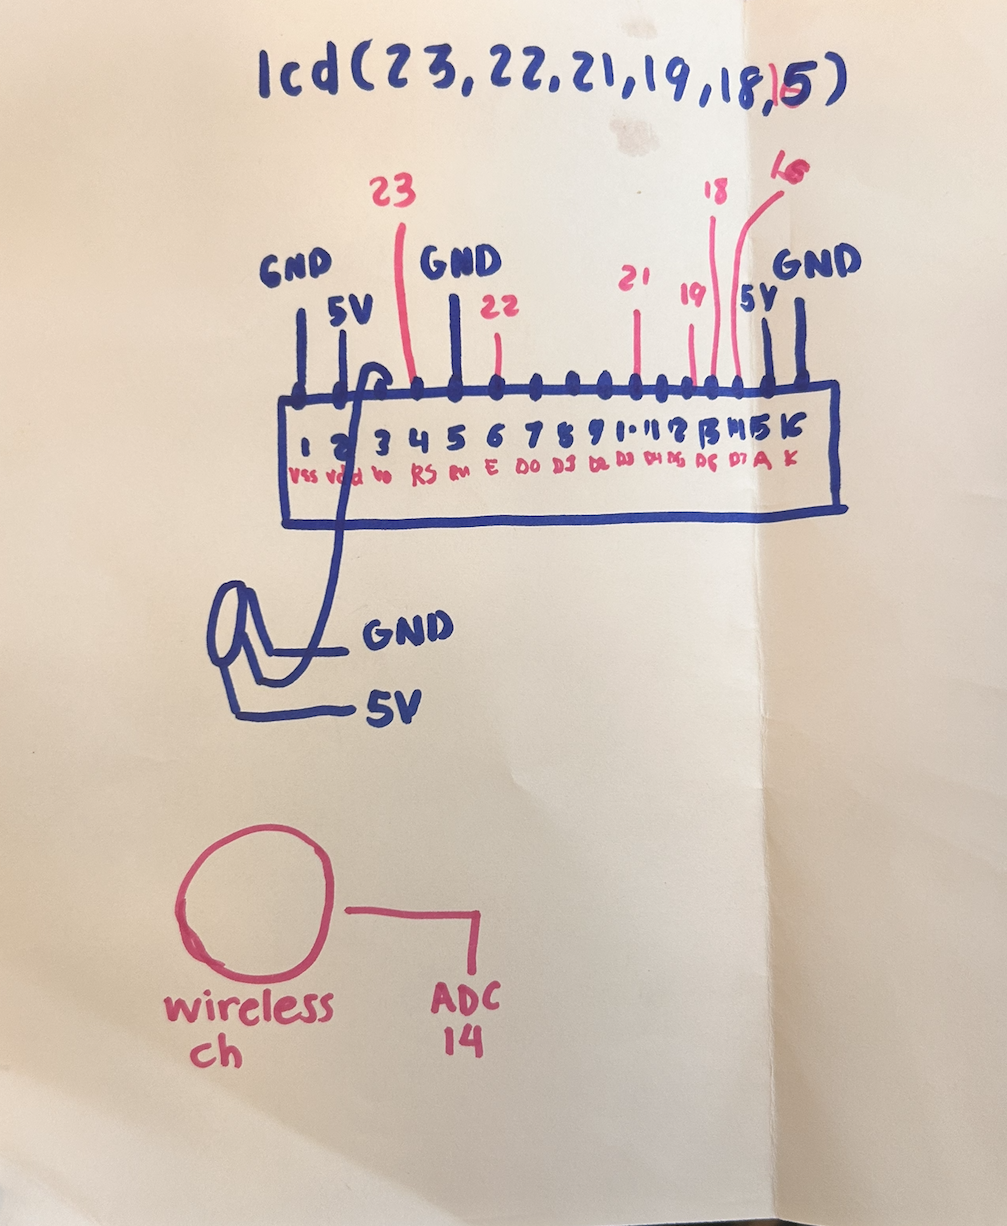 lcd(23,22,21,19,18,15)
18
23
GND
GND
5V
22
21
19
5V
GND
1 2 3 4 5 6 7 8 9 10 11 12 13 14 15 16
Vss Vdd Vo RS RW E D0 D2 D3 D4 D5 D6 D7 A K
GND
5V
wireless
ch
ADC
14